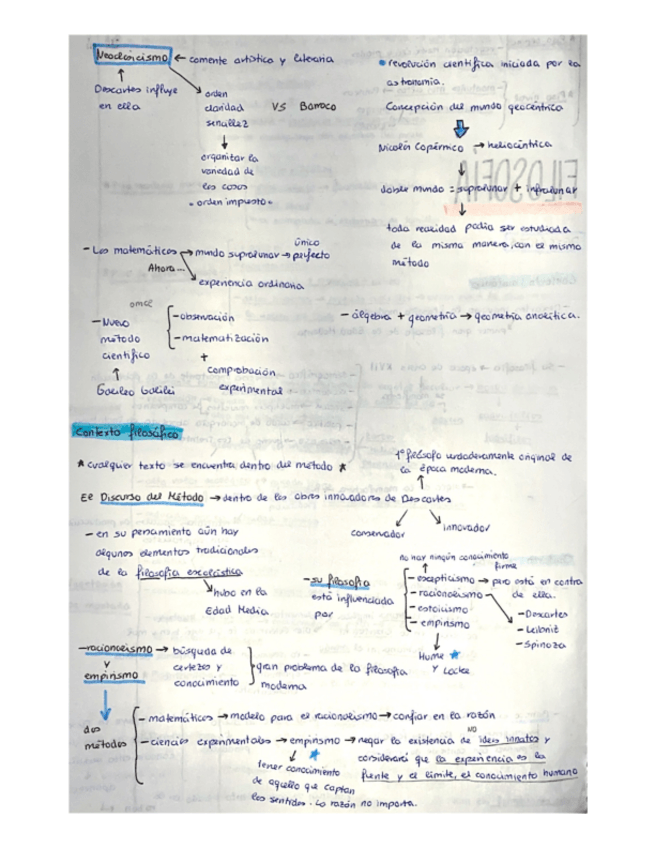 Neoclasicismo ← corriente artística y literaria
Descartes influye
en ella
orden
claridad
sencillez
VS Barroco
organizar la
variedad de
las cosas
"orden impuesto"
• revolución científica iniciada por la
astronomía.
Concepción del mundo geocéntrica
Nicolás Copérnico → heliocéntrica
doble mundo = supralunar + infralunar
toda realidad podía ser estudiada
de la misma manera, con el mismo
método
FILOSOFIA
único
- Las matemáticas → mundo supralunar → perfecto
Ahora...
experiencia ordinaria
omce
- Nuevo
método
científico
Galileo Galilei
- observación
- matematización
+
comprobación
experimental
- álgebra + geometría → geometría analítica.
Contexto filosófico
* cualquier texto se encuentra dentro del método *
1º filósofo verdaderamente original de
la época moderna.
El Discurso del Método → dentro de las obras innovadoras de Descartes
conservador
innovador
- en su pensamiento aún hay
algunos elementos tradicionales
de la filosofía escolástica
hubo en la
Edad Media
- su filosofía
está influenciada
por
no hay ningún conocimiento
firme
- escepticismo → pero está en contra
de ella.
- racionalismo
- estoicismo
- empirismo
- Descartes
- Leibniz
- Spinoza
Hume
y Locke
- racionalismo → búsqueda de
y
certezas y
empirismo
conocimiento
gran problema de la filosofía
moderna
dos
métodos
- matemáticas → modelo para el racionalismo → confiar en la razón
- ciencias experimentales → empirismo → negar la existencia de ideas innatas y
NO
considerará que la experiencia es la
fuente y el límite, el conocimiento humano
tener conocimiento
de aquello que captan
los sentidos. La razón no importa.